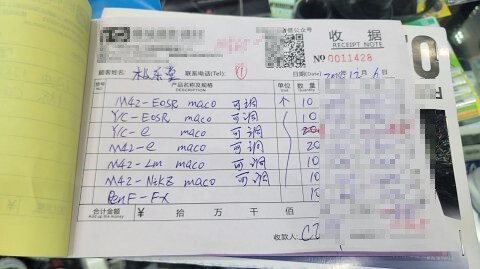 微信公众号
收 据
RECEIPT NOTE
№ 0011428
顾客姓名 联系电话(Tel) 日期(Date) 12月6日
产品名称及规格 单位 数量
DESCRIPTION Unit
M42-EOSR maco 可调 个 10
Y/C-EOSR maco 可调 10
Y/C-e maco 可调 20
M42-e maco 可调 20
M42-Lm maco 可调 10
M42-NikZ maco 可调 10
PenF-FX 10
合计金额 ¥ 拾 万 千 佰
Add up the money
收款人: